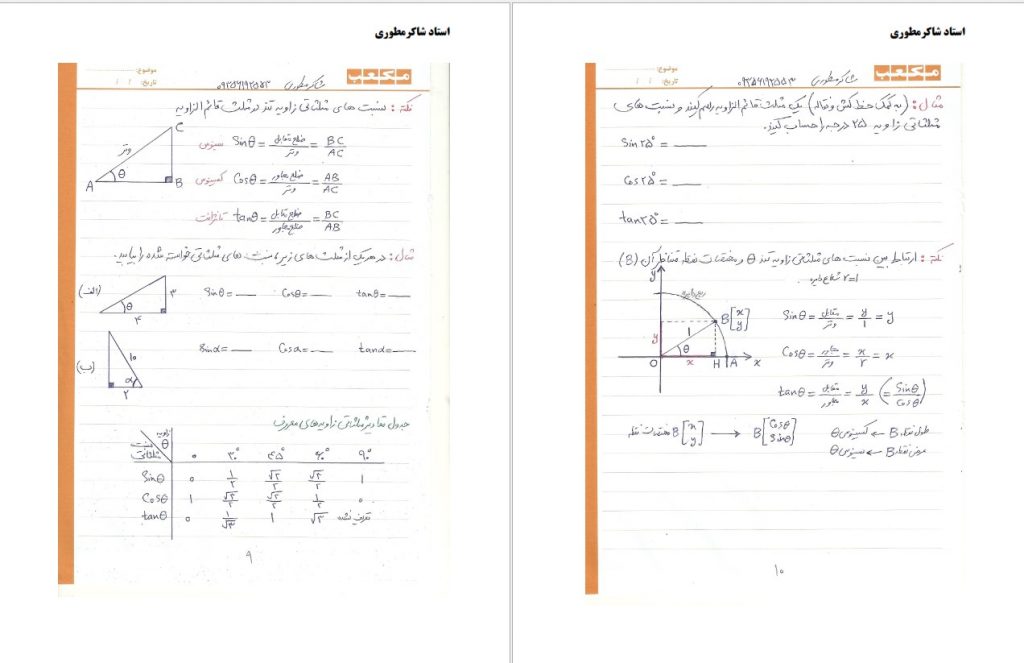 استاد شاکرمطوری
مکعب
موضوع:
تاریخ: / /
شاکرمطوری
نکته: نسبت های مثلثاتی زاویه تند در مثلث قائم الزاویه
C
وتر
A θ B
سینوس Sinθ = ضلع مقابل / وتر = BC / AC
کسینوس Cosθ = ضلع مجاور / وتر = AB / AC
تانژانت tanθ = ضلع مقابل / ضلع مجاور = BC / AB
مثال: در هر یک از مثلث های زیر، نسبت های مثلثاتی خواسته شده را بیابید.
الف) θ ۳ ۴ Sinθ = ___ Cosθ = ___ tanθ = ___
ب) ۱۰ α ۲ Sinα = ___ Cosα = ___ tanα = ___
جدول مقادیر مثلثاتی زاویه های معروف
زاویه θ
نسبت مثلثاتی ۰ ۳۰° ۴۵° ۶۰° ۹۰°
Sinθ ۰ ۱/۲ √۲/۲ √۳/۲ ۱
Cosθ ۱ √۳/۲ √۲/۲ ۱/۲ ۰
tanθ ۰ ۱/√۳ ۱ √۳ تعریف نشده
۹
استاد شاکرمطوری
مکعب
موضوع:
تاریخ: / /
شاکرمطوری
مثال: (به کمک خط کش و نقاله) یک مثلث قائم الزاویه رسم کنید و نسبت های
مثلثاتی زاویه ۲۵ درجه را حساب کنید.
Sin ۲۵° = ___
Cos ۲۵° = ___
tan ۲۵° = ___
نکته: ارتباط بین نسبت های مثلثاتی زاویه تند θ و مختصات نقطه متناظر آن (B)
r=۱ شعاع دایره
y
ربع دایره
B [x y]
y 1 θ
O x H A x
Sinθ = مقابل / وتر = y / 1 = y
Cosθ = مجاور / وتر = x / r = x
tanθ = مقابل / مجاور = y / x (= Sinθ / Cosθ)
مختصات نقطه B [x y] → B [Cosθ Sinθ]
طول نقطه B ← کسینوس θ
عرض نقطه B ← سینوس θ
۱۰